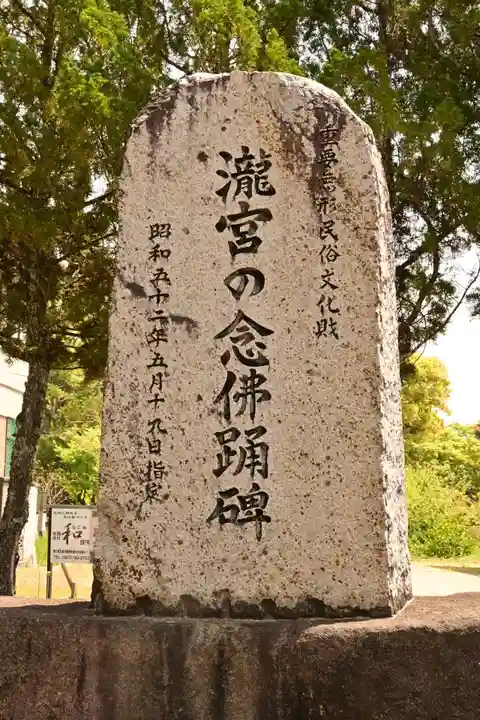 重要無形民俗文化財
瀧宮の念佛踊碑
昭和五十二年五月十九日指定
和